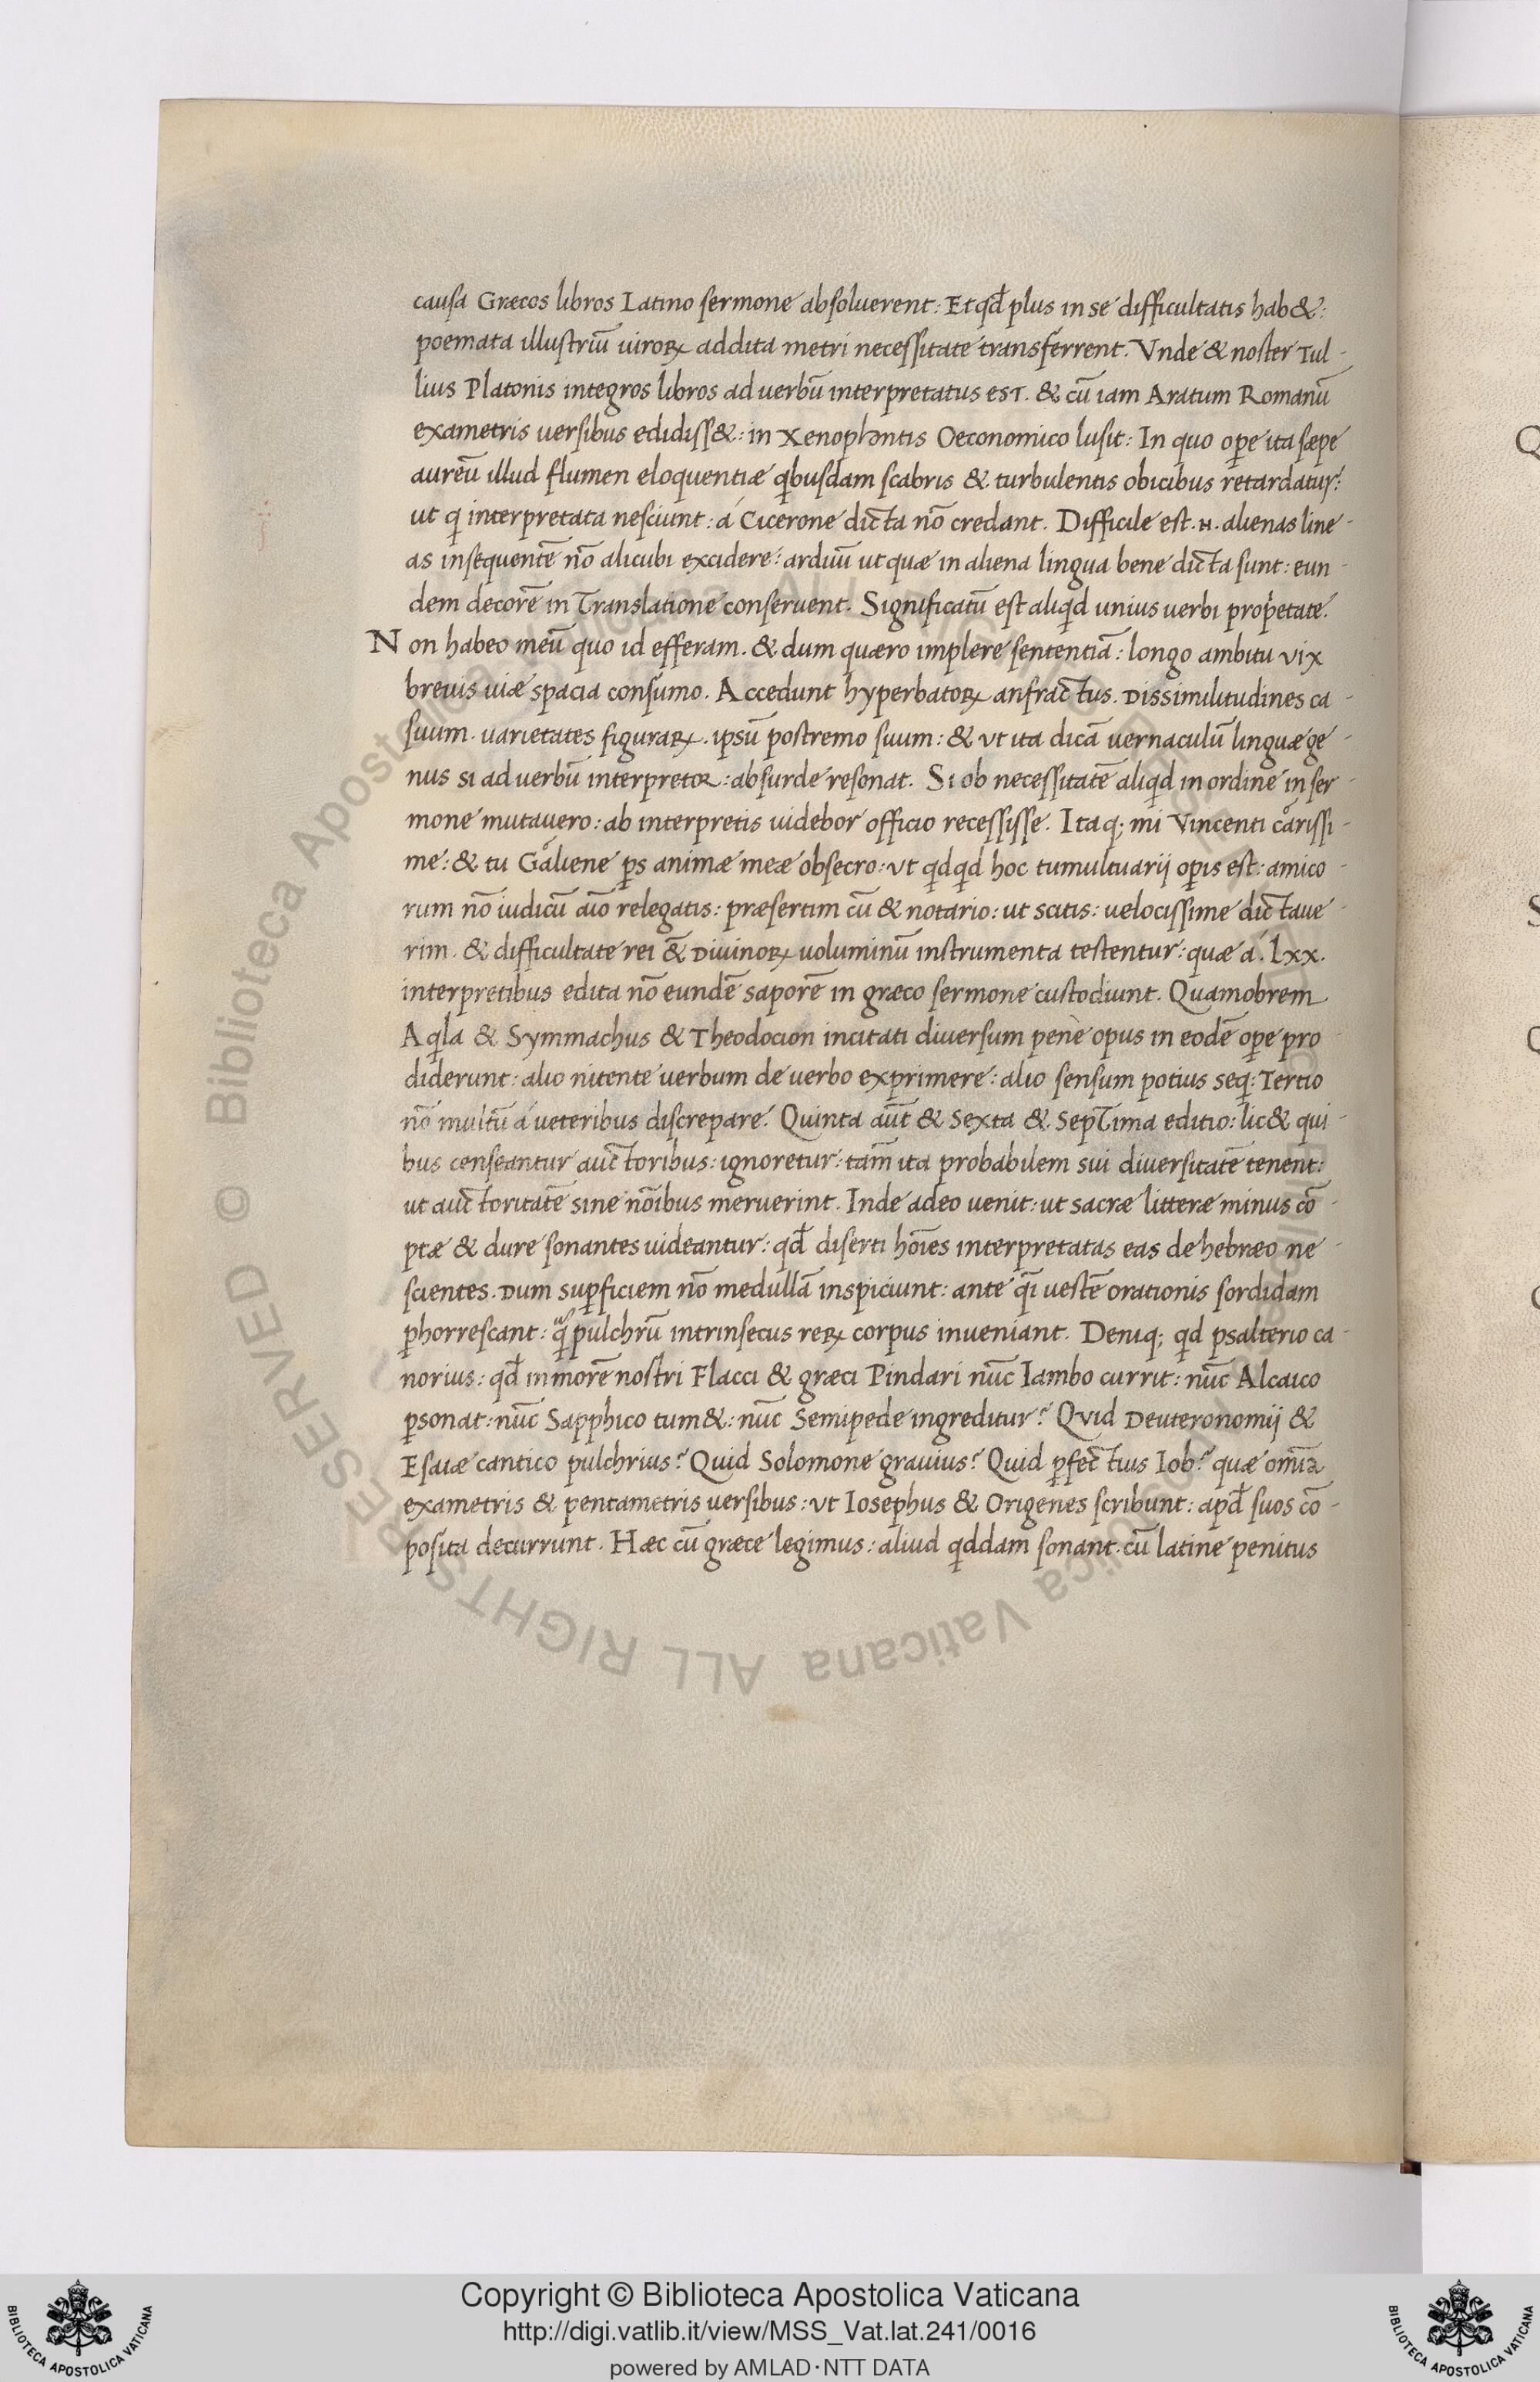 causa Græcos libros Latino sermone absoluerent: Et qđ plus in se difficultatis hab&:
poemata illustriū uiroꝝ addita metri necessitate transferrent. Vnde & noster Tul-
lius Platonis integros libros ad uerbū interpretatus est. & cū iam Aratum Romanū
exametris uersibus edidiss&: in Xenophontis Oeconomico lusit: In quo oꝑe ita sæpe
aureū illud flumen eloquentiæ qbusdam scabris & turbulentis obicibus retardatur:
ut q interpretata nesciunt: á Cicerone dicta nō credant. Difficile est .H. alienas line-
as insequentē nō alicubi excidere: arduū ut quæ in aliena lingua bene dicta sunt: eun-
dem decorē in Translatione conseruent. Significatū est aliqd unius uerbi propetate.
Non habeo meū quo id efferam. & dum quæro implere sententiā: longo ambitu vix
breuis uiæ spacia consumo. Accedunt hyperbatoꝝ anfractus. Dissimilitudines ca-
suum. uarietates figuraꝝ. ipsū postremo suum: & vt ita dicā uernaculū linguæ ge-
nus si ad uerbū interpretor: absurde resonat. Si ob necessitatē aliqd in ordine in ser-
mone mutauero: ab interpretis uidebor officio recessisse. Itaq; mi Vincenti carissi-
me: & tu Galiene ꝑs animæ meæ obsecro: vt qdqd hoc tumultuarij oꝑis est: amico-
rum nō iudicū aīo relegatis: præsertim cū & notario: ut scitis: uelocissime dictaue-
rim. & difficultate rei &̄ Diuinoꝝ uoluminū instrumenta testentur: quæ á .Lxx.
interpretibus edita nō eundē saporē in græco sermone custodiunt. Quamobrem
Aqla & Symmachus & Theodocion incitati diuersum penè opus in eodē oꝑe pro-
diderunt: alio nitente uerbum de uerbo exprimere: alio sensum potius seq: Tertio
nō multū á ueteribus discrepare. Quinta aūt & Sexta & Septima editio: lic& qui-
bus censeantur auctoribus: ignoretur: tam̄ ita probabilem sui diuersitatē tenent:
ut auctoritatē sine nōibus meruerint. Inde adeo uenit: ut sacræ litteræ minus cō-
ptæ & dure sonantes uideantur: qđ diserti hōies interpretatas eas de hebræo ne-
scientes. Dum suꝑficiem nō medullā inspiciunt: ante q̄i uestē orationis sordidam
ꝑhorrescant: q̄ pulchrū intrinsecus reꝝ corpus inueniant. Deniq; qd psalterio ca-
norius: qđ in morē nostri Flacci & græci Pindari nūc Iambo currit: nūc Alcaico
ꝑsonat: nūc Sapphico tum&: nūc Semipede ingreditur? Qvid Deuteronomij &
Esaiæ cantico pulchrius? Quid Solomone grauius? Quid ꝑfectius Iob? quæ omīa
exametris & pentametris uersibus: vt Iosephus & Origenes scribunt: apđ suos cō-
posita decurrunt. Hæc cū græce legimus: aliud qddam sonant. cū latine penitus
© Biblioteca Apostolica Vaticana ALL RIGHTS RESERVED
Copyright © Biblioteca Apostolica Vaticana
http://digi.vatlib.it/view/MSS_Vat.lat.241/0016
powered by AMLAD·NTT DATA
BIBLIOTECA APOSTOLICA VATICANA
BIBLIOTECA APOSTOLICA VATICANA